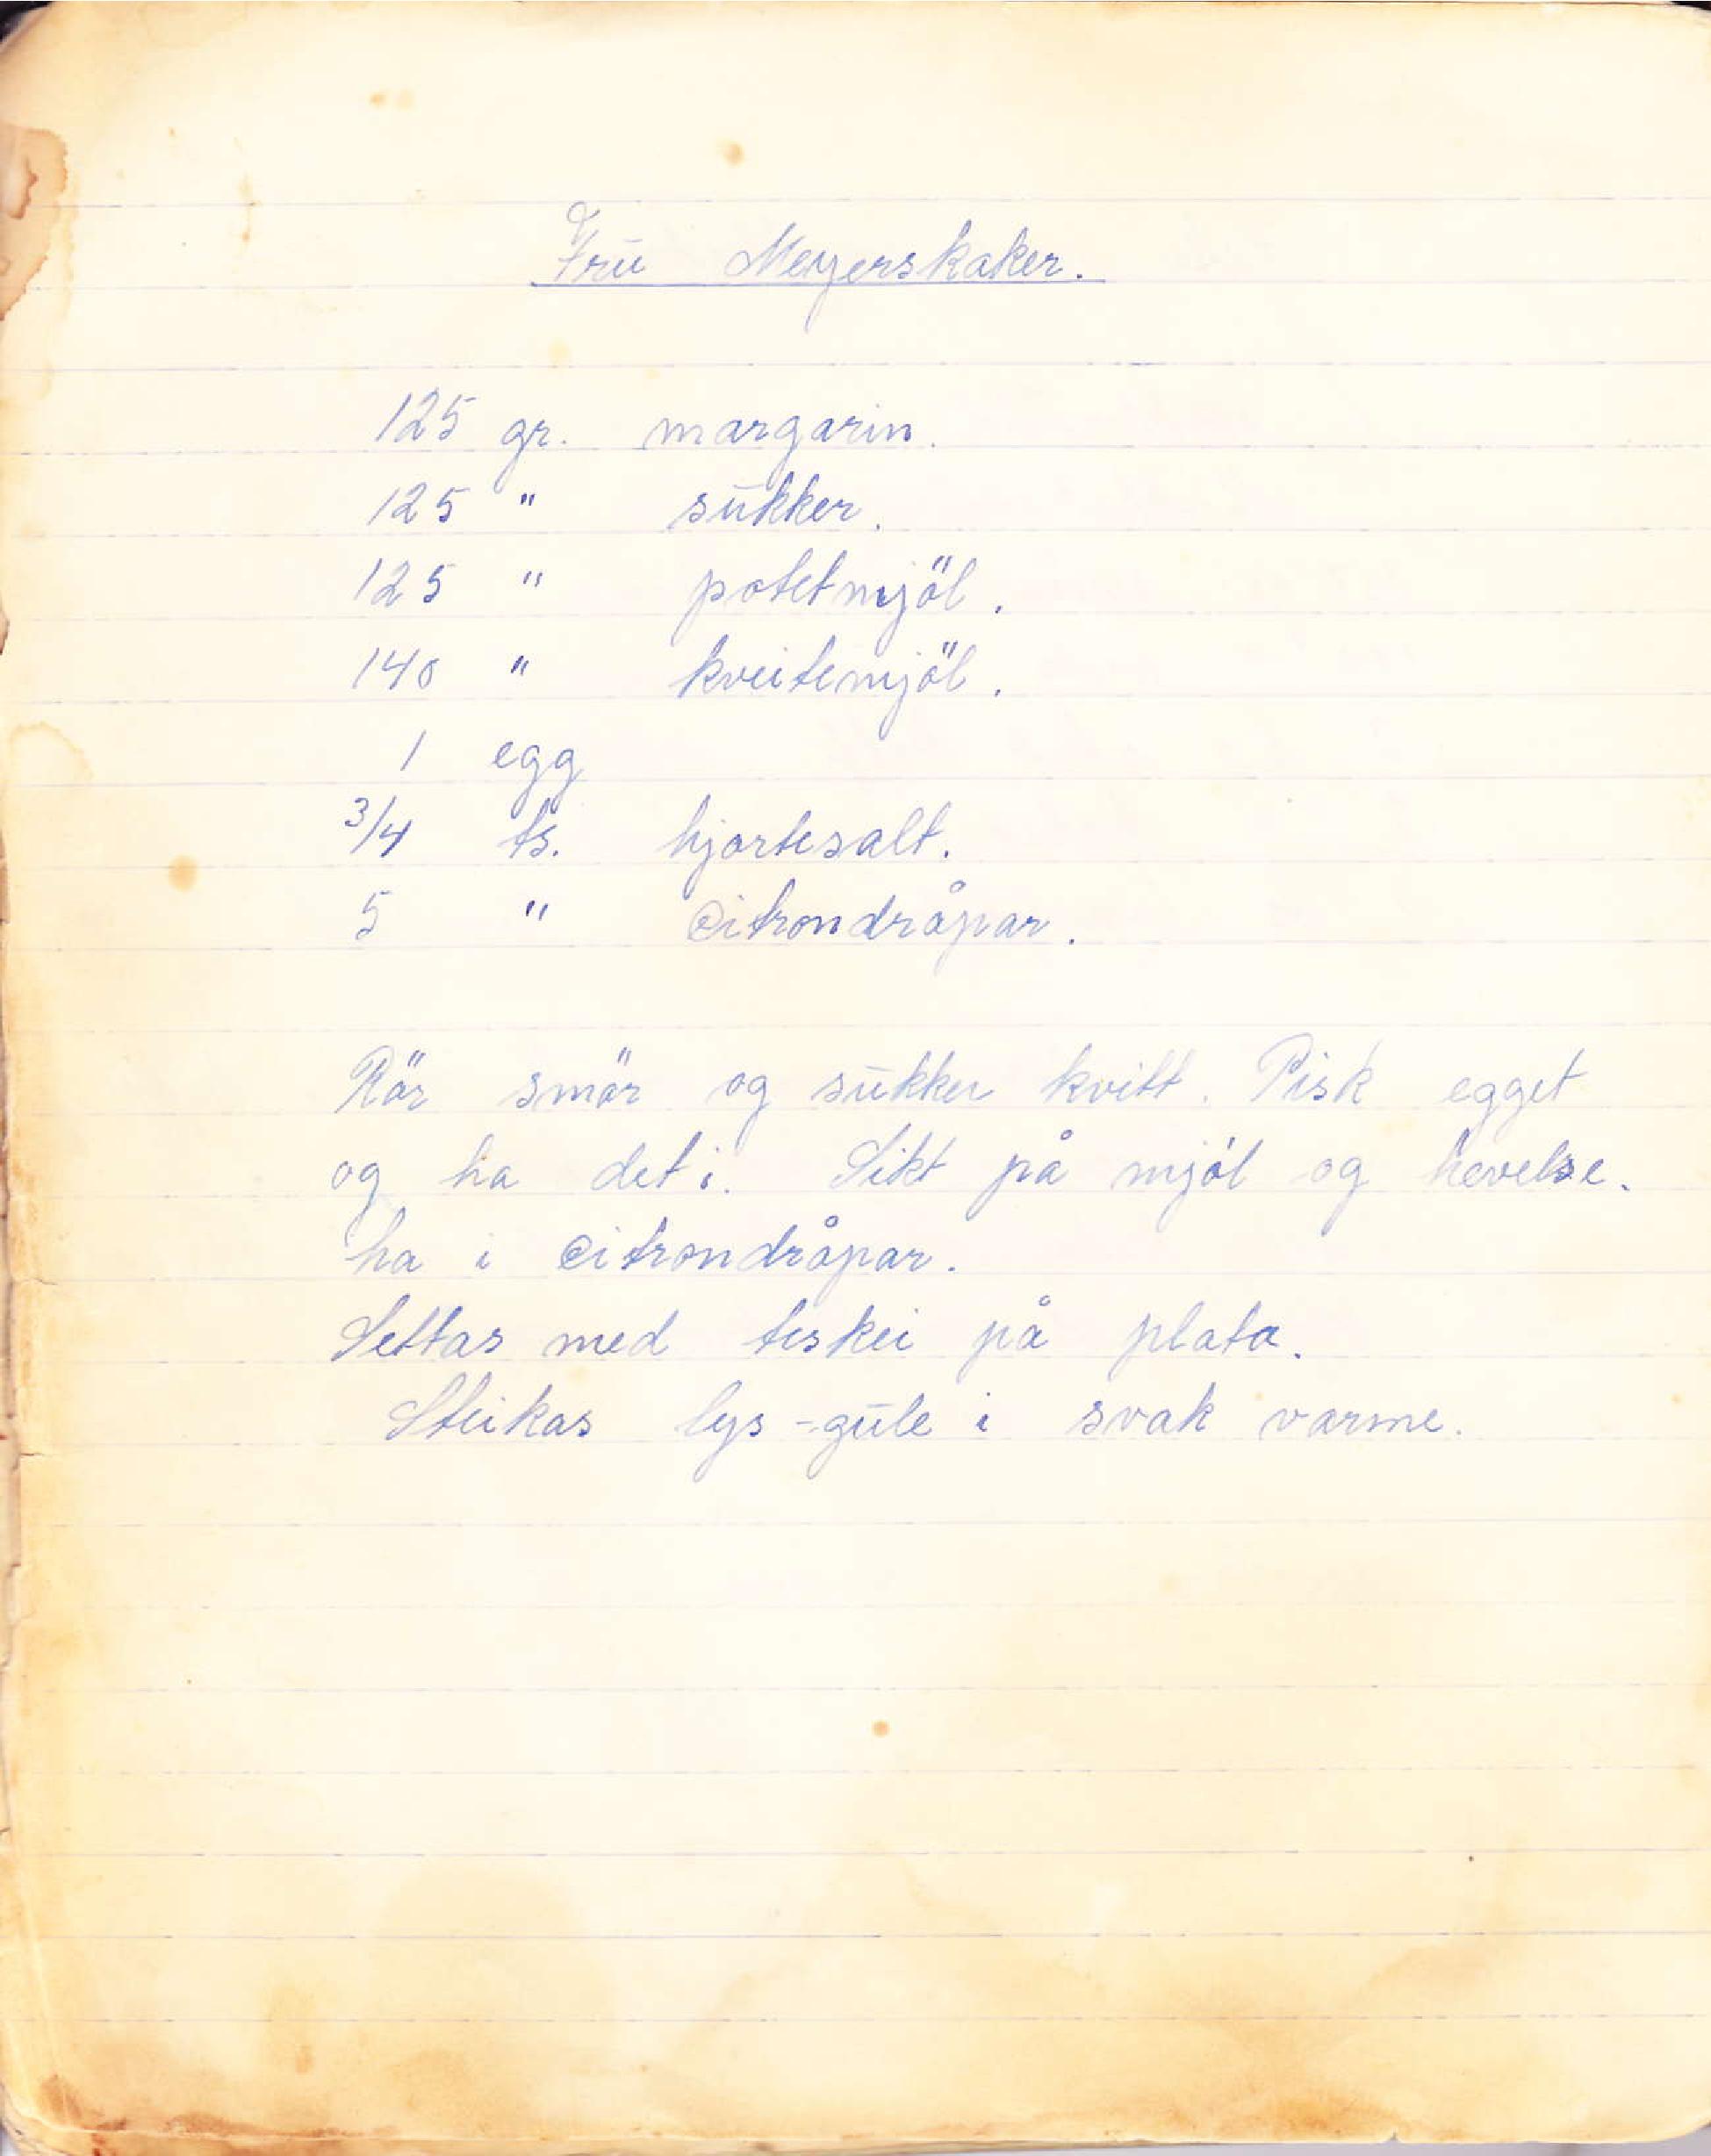 Frū Meyerskaker.
125 gr. margarin.
125 " sūkker.
125 " potetmjöl.
140 " kveitemjöl.
1 egg
3/4 ts. hjortesalt.
5 " citrondråpar.
Rör smör og sūkker kvitt. Pisk egget
og ha det i. Sikt på mjöl og hevelse.
ha i citrondråpar.
Settas med teskei på plata.
Steikas lys-gūle i svak varme.